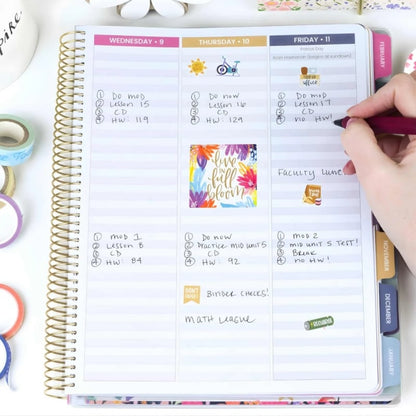 WEDNESDAY • 9
① Do mod
② Lesson 15
③ CD
④ HW: 119
① mod 1
② Lesson 8
③ CD
④ HW: 84
THURSDAY • 10
① Do now
② Lesson 16
③ CD
④ HW: 129
live
in full
bloom
① Do now
② Practice mid unit 5
③ CD
④ HW: 92
BINDER CHECKS!
math league
FRIDAY • 11
Patriot Day
office
① Do mod
② Lesson 17
③ CD
④ no HW!
Faculty Lun
① mod 2
② mid unit 5 TEST!
③ Break
④ no HW!
FEBRUARY
OCTOBER
DECEMBER
JANUARY